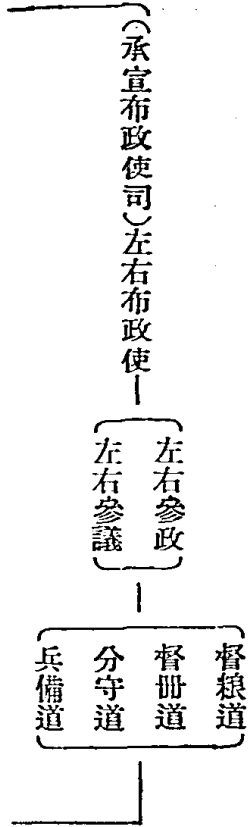 (承宣布政使司)左右布政使
左右參政
左右參議
督粮道
督册道
分守道
兵備道